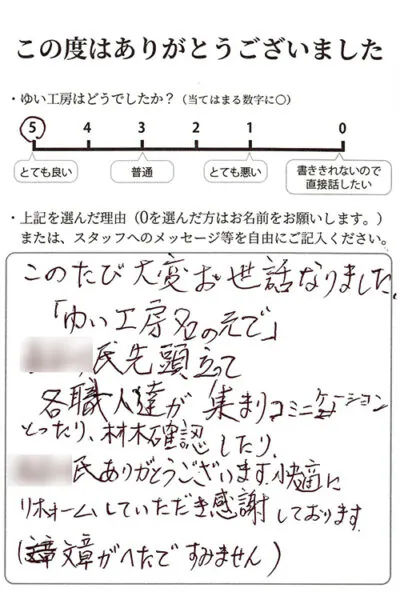 この度はありがとうございました
・ゆい工房はどうでしたか？（当てはまる数字に○）
5 4 3 2 1 0
とても良い 普通 とても悪い 書ききれないので
直接話したい
・上記を選んだ理由（0を選んだ方はお名前をお願いします。）
または、スタッフへのメッセージ等を自由にご記入ください。
このたび大変お世話なりました。
「ゆい工房名の元で」
氏先頭立って
各職人達が集まりコミニケーション
とったり、材木確認したり、
氏ありがとうございます快適に
リホームしていただき感謝しております
(文章がへたですみません)